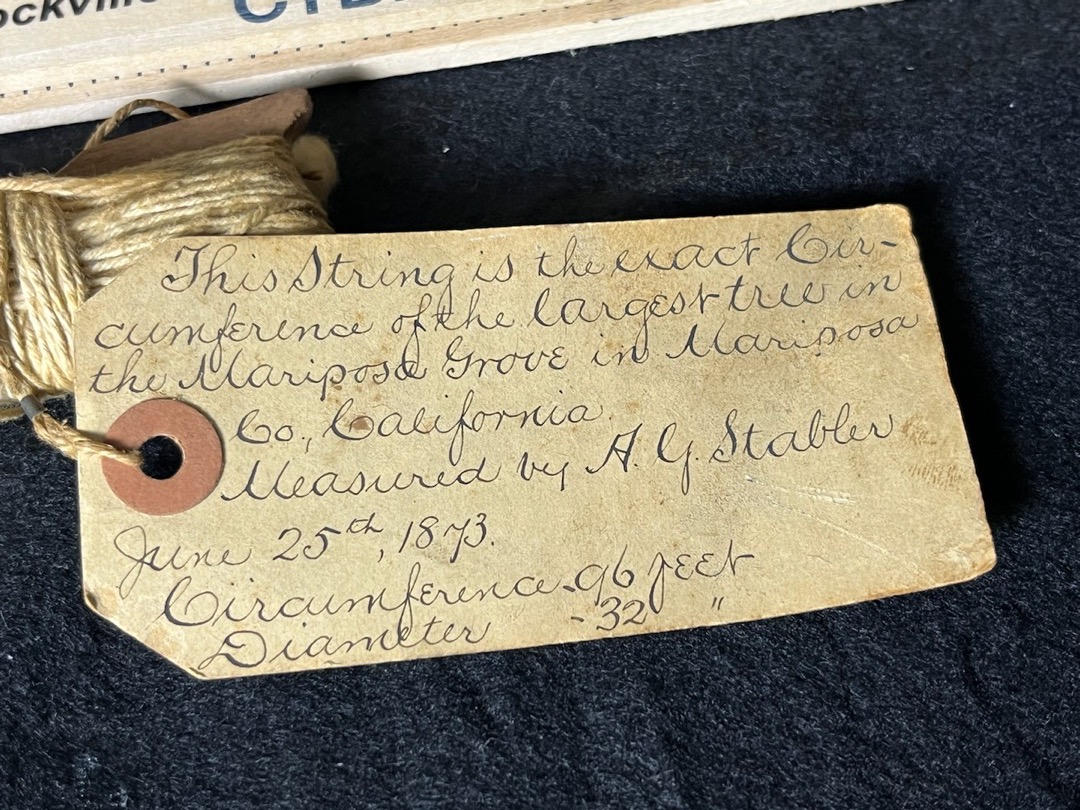 This String is the exact Cir-
cumference of the largest tree in
the Mariposa Grove in Mariposa
Co., California.
Measured by A. G. Stabler
June 25th, 1873.
Circumference - 96 feet
Diameter - 32 "